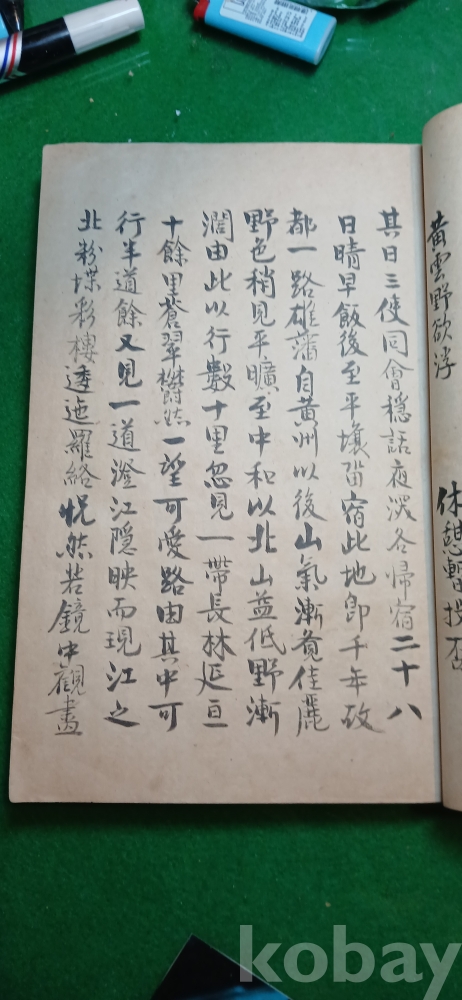 黃雲野欲浮
休憩暫投
其日三使同會穩話夜深各歸宿二十八
日晴早飯後至平壤留宿此地卽千年故
都一路雄藩自黃州以後山氣漸覺佳麗
野色稍見平曠至中和以北山益低野漸
濶由此以行數十里忽見一帶長林延亘
十餘里蒼翠欝然一望可愛路由其中可
行半道餘又見一道澄江隱映而現江之
北粉堞彩樓逶迤羅絡恍然若鏡中觀畫
kobay